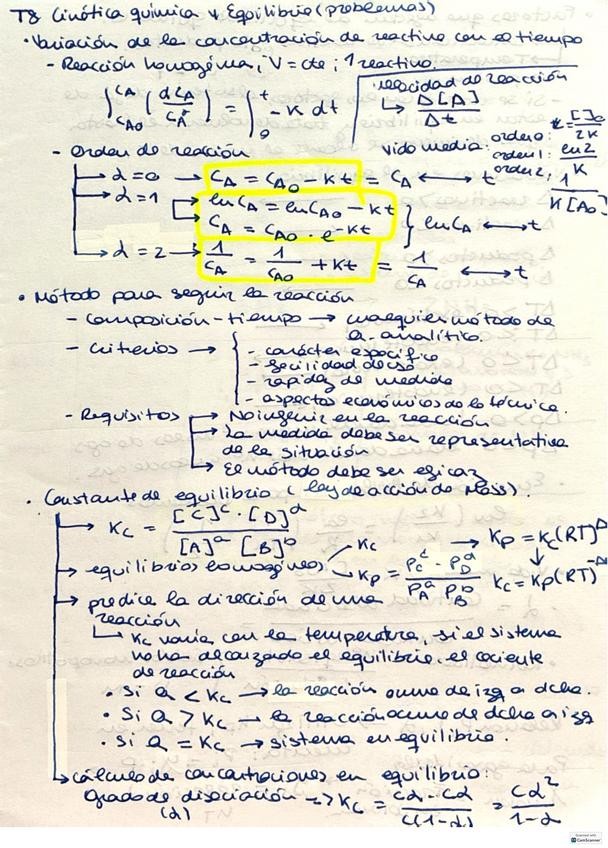 T8 Cinética química y Equilibrio (problemas)
• Variación de la concentración de reactivo con el tiempo
- Reacción homogénea, V = cte, 1 reactivo.
∫_{CAo}^{CA} (dCA / CA^α) = ∫_0^t -K dt
velocidad de reacción
↳ Δ[A] / Δt
vida media: orden 0: [ ]o / 2K
orden 1: ln2 / K
orden 2: 1 / K[Ao]
- Orden de reacción
→ α=0 → CA = CAo - Kt = CA ↔ t
→ α=1 → lnCA = lnCAo - Kt
→ CA = CAo · e^-Kt } lnCA ↔ t
→ α=2 → 1/CA = 1/CAo + Kt = 1/CA ↔ t
• Método para seguir la reacción
- composición - tiempo → cualquier método de
q. analítico.
- Criterios → { - carácter específico
- facilidad de uso
- rapidez de medida
- aspectos económicos de la técnica.
- Requisitos → No ingerir en la reacción
→ La medida debe ser representativa
de la situación
→ El método debe ser eficaz
• Constante de equilibrio (ley de acción de Mass).
→ Kc = [C]^c · [D]^d / [A]^a [B]^b
→ equilibrios homogéneos Kc
Kp = Pc^c · PD^d / PA^a PB^b
→ Kp = Kc(RT)^Δ
Kc = Kp(RT)^-Δ
→ predice la dirección de una
reacción
↳ Kc varía con la temperatura, si el sistema
no ha alcanzado el equilibrio, el cociente
de reacción
• Si Q < Kc → la reacción ocurre de izq a dcha.
• Si Q > Kc → la reacción ocurre de dcha a izq
• Si Q = Kc → sistema en equilibrio.
→ cálculo de concentraciones en equilibrio:
Grado de disociación → Kc = cα · cα / c(1-α) = cα² / 1-α
(α)
Scanned with
CamScanner